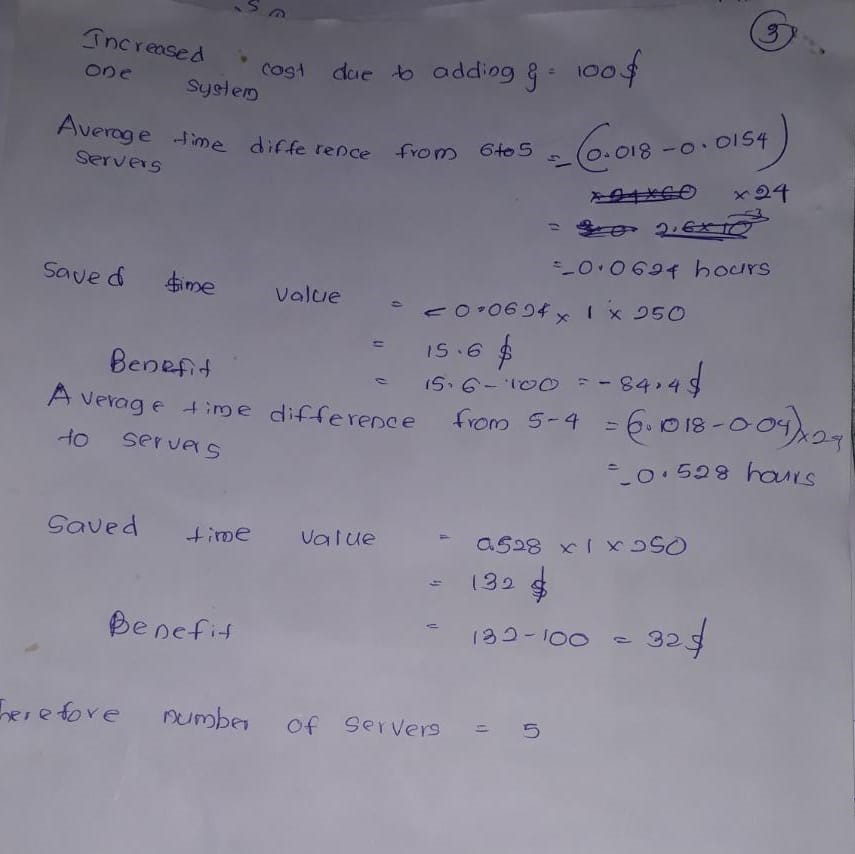 3
Increased cost due to adding = 100$
one system
Average time difference from 6to5 = (0.018-0.0154)
servers
x24
= 2.6x10^-3
=-0.0624 hours
Saved time value = 0.0624 x 1 x 250
= 15.6 $
Benefit = 15.6-100 = -84.4$
Average time difference from 5-4 = (0.018-0.04)x24
to servers
=-0.528 hours
Saved time value = 0.528 x 1 x 250
= 132 $
Benefit = 132-100 = 32$
herefore number of servers = 5